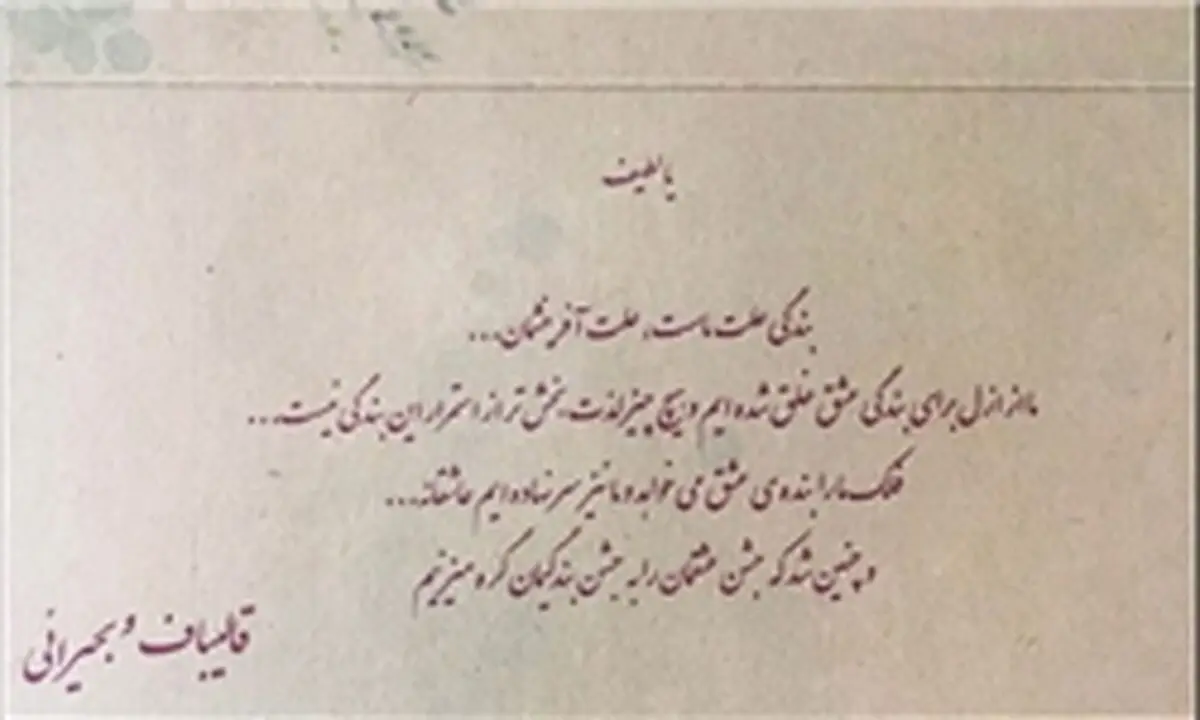 یا لطیف
بندگی علت ماست، علت آفرینشمان...
ما از ازل برای بندگی عشق خلق شده ایم و هیچ چیز لذت بخش تر از استمرار این بندگی نیست...
فلک ما را بنده ی عشق می خواهد و ما نیز سر نهاده ایم عاشقانه...
و چنین شد که جشن عشقمان را به جشن بندگیمان گره میزنیم
قالیباف و بحیرانی